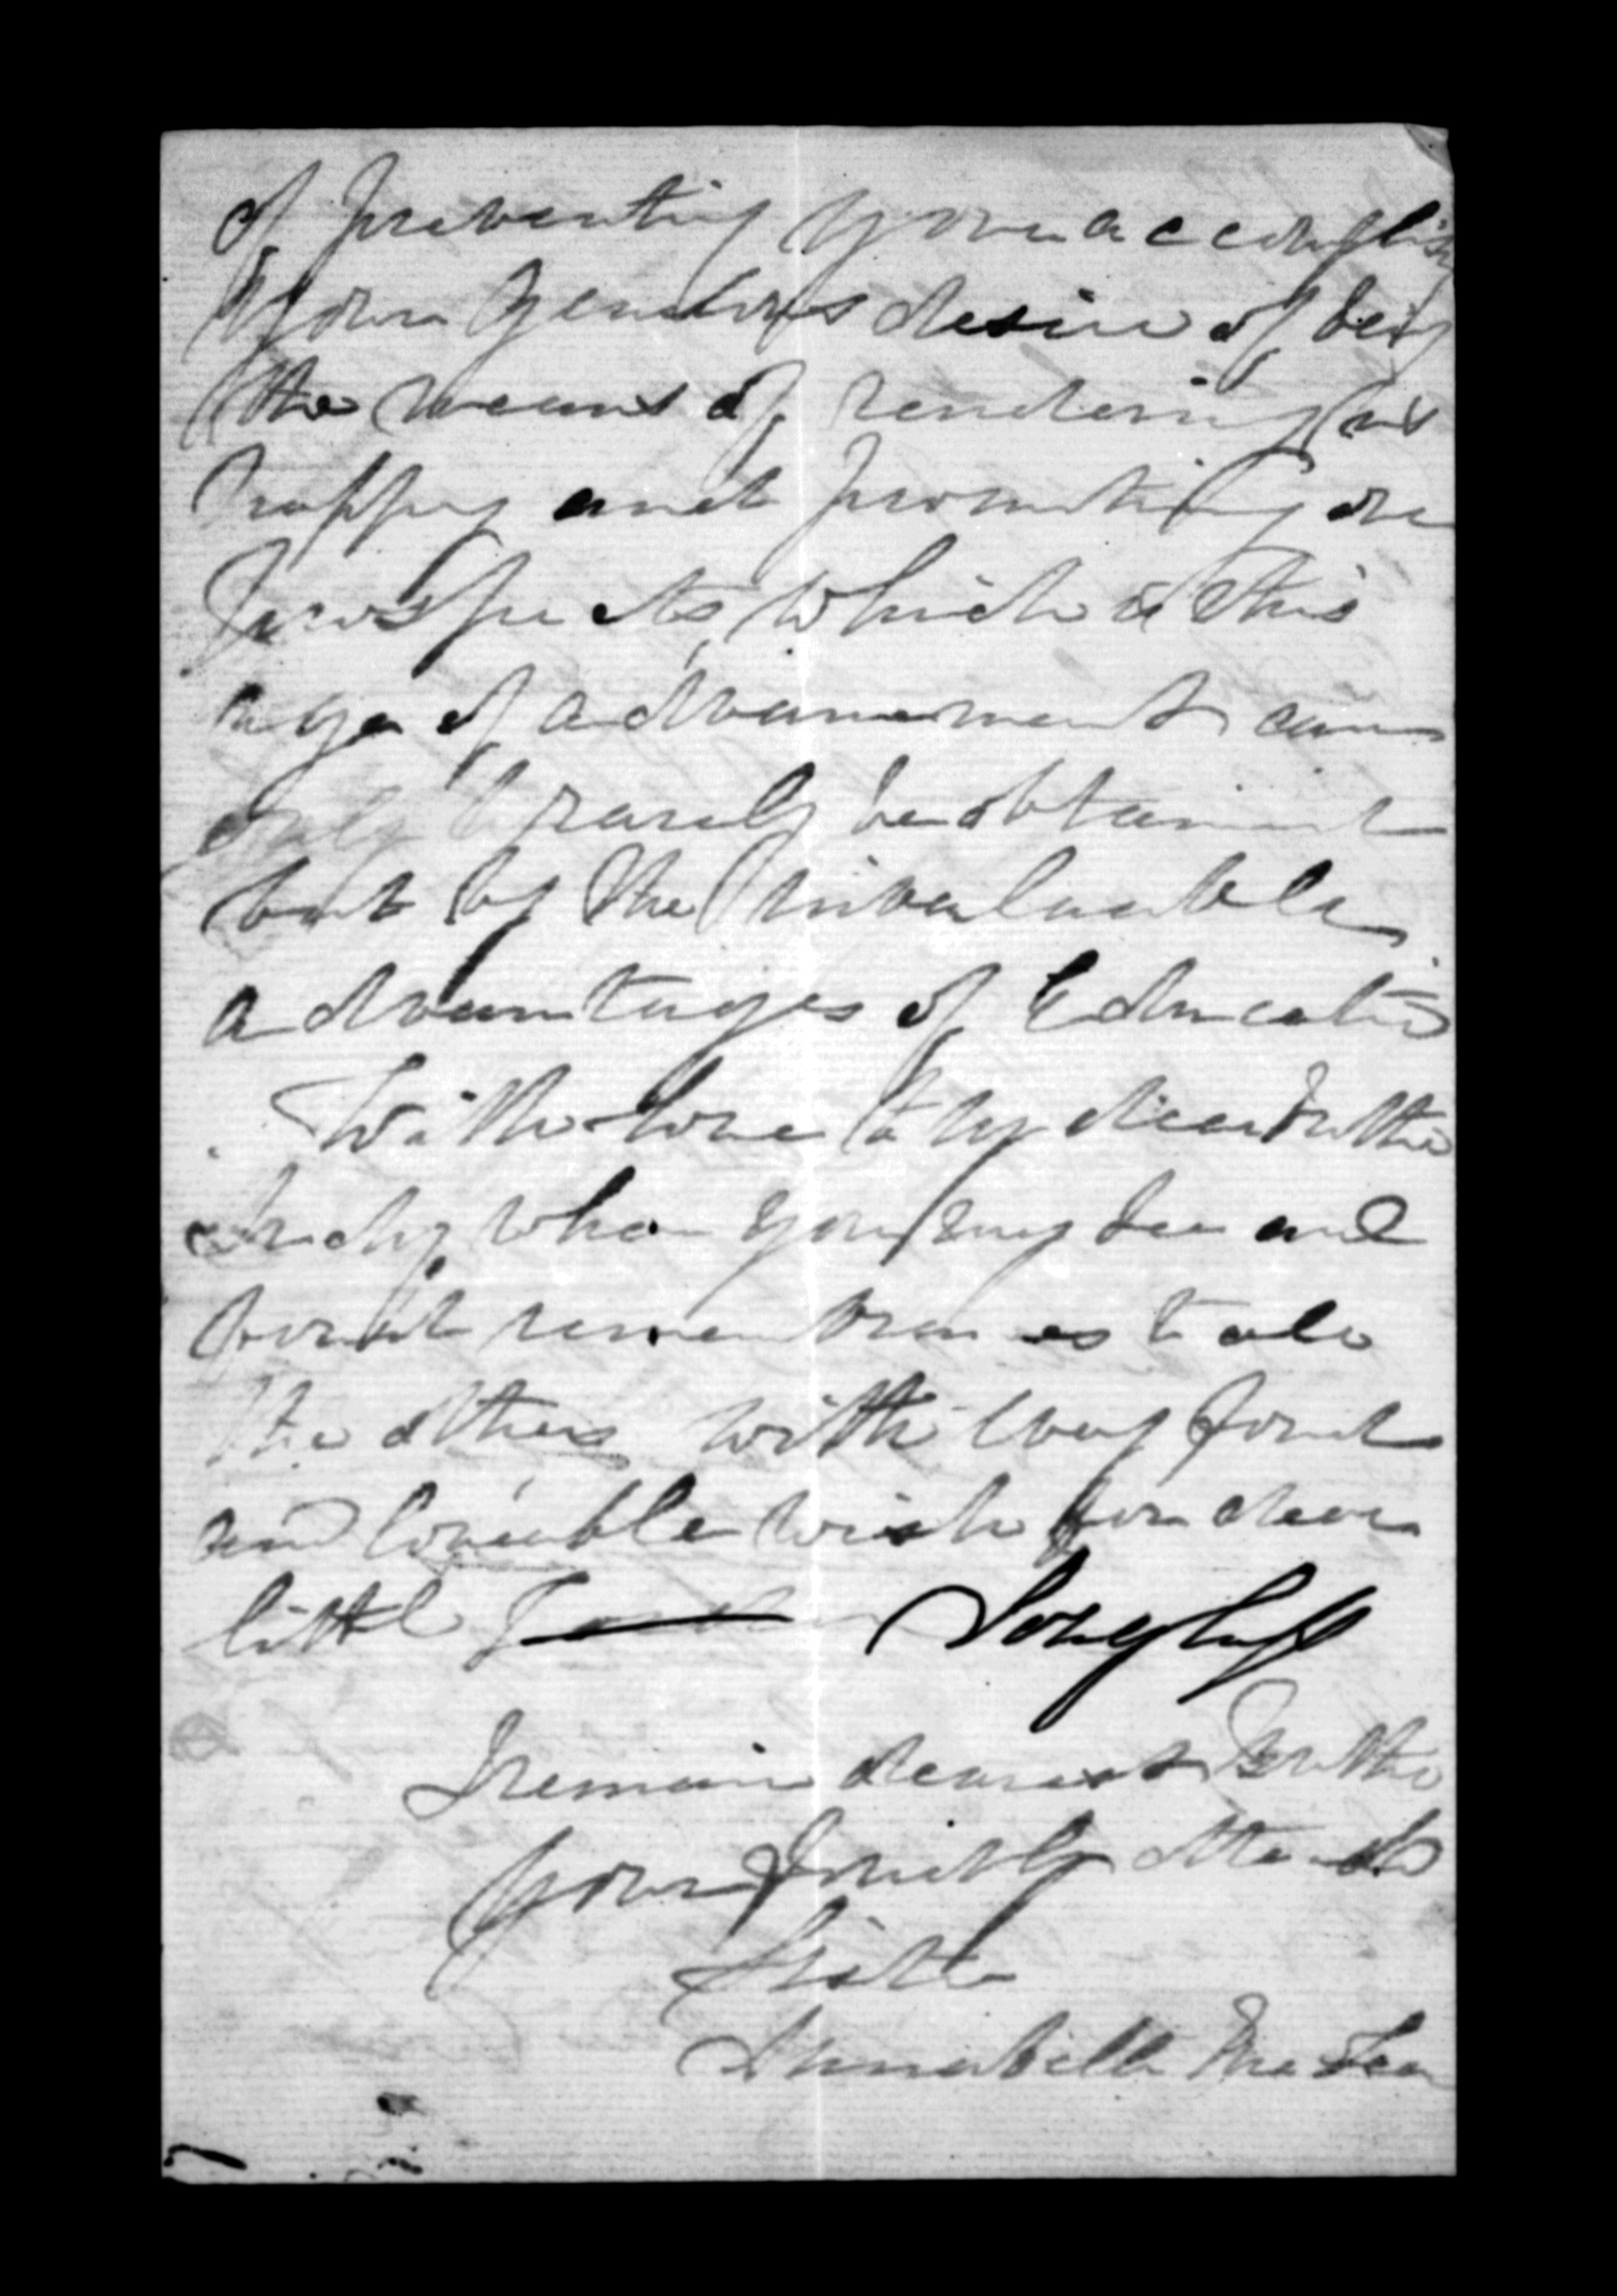 of preventing your accomplish
your generous desire of being
the means of rendering us
happy and promoting our
prospects, which in this
age of advancement can
only rarely be obtained
but by the invaluable
advantages of Education
With love to my dear Brother
Andy whom you may see and
fond remembrances to all
the others with every fond
and loveable wish for dear
little Douglass
I remain dearest Brother
your fondly attached
Sister
Annabella McLean